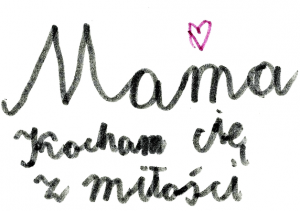 Mama
Kocham cię
z miłości